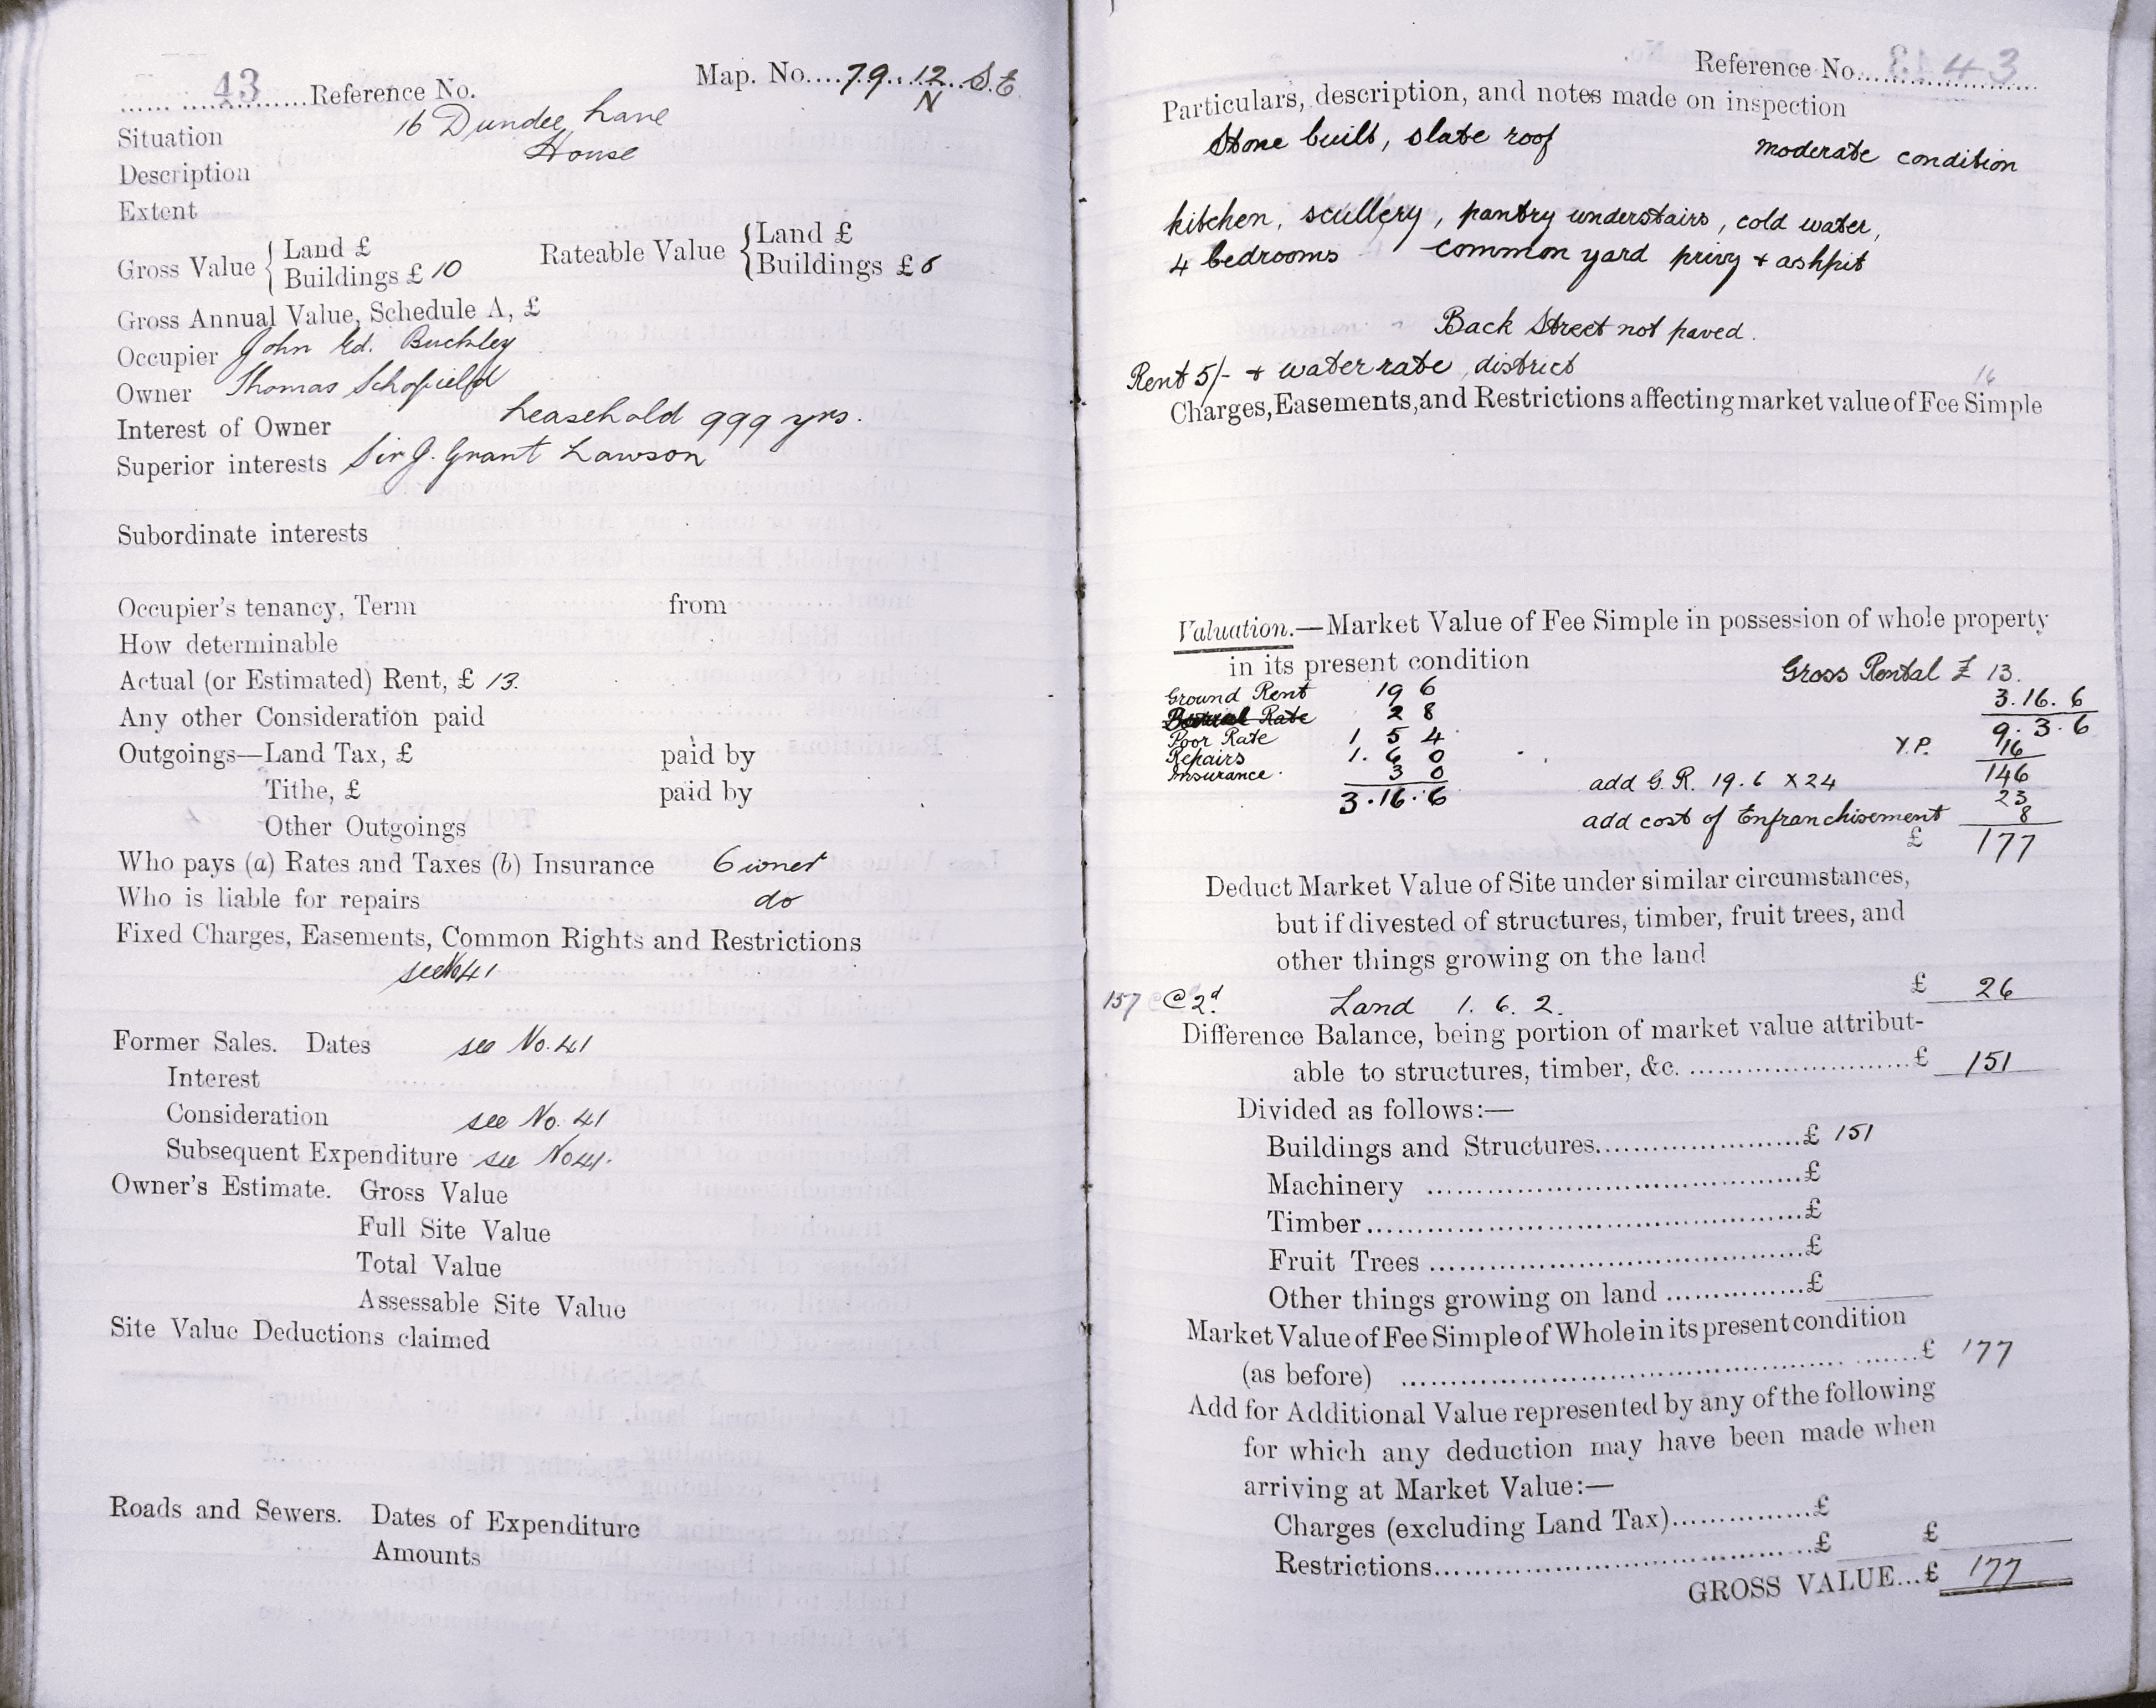 43 Reference No. Map. No. 79. 12 S.E.
N
Situation 16 Dundee Lane
Description House
Extent
Gross Value { Land £ Rateable Value { Land £
Buildings £ 10 Buildings £
Gross Annual Value, Schedule A, £
Occupier John Ed. Buckley
Owner Thomas Schofield
Interest of Owner Leasehold 999 yrs.
Superior interests Sir J. Grant Lawson
Subordinate interests
Occupier's tenancy, Term from
How determinable
Actual (or Estimated) Rent, £ 13.
Any other Consideration paid
Outgoings—Land Tax, £ paid by
Tithe, £ paid by
Other Outgoings
Who pays (a) Rates and Taxes (b) Insurance Owner
Who is liable for repairs do
Fixed Charges, Easements, Common Rights and Restrictions
see No 41
Former Sales. Dates see No. 41
Interest
Consideration see No. 41
Subsequent Expenditure see No 41.
Owner's Estimate. Gross Value
Full Site Value
Total Value
Assessable Site Value
Site Value Deductions claimed
Roads and Sewers. Dates of Expenditure
Amounts
Reference No. 43
Particulars, description, and notes made on inspection
Stone built, slate roof moderate condition
kitchen, scullery, pantry understairs, cold water,
4 bedrooms common yard privy + ashpit
Back Street not paved.
Rent 5/- + water rate, district
16
Charges, Easements, and Restrictions affecting market value of Fee Simple
Valuation.—Market Value of Fee Simple in possession of whole property
in its present condition Gross Rental £ 13.
Ground Rent 19 6 3.16.6
Rate 2 8 9.3.6
Poor Rate 1 5 4 Y.P. 16
Repairs 1. 6 0 146
Insurance. 3 0 add G.R. 19.6 x 24 23
3.16.6 add cost of Enfranchisement 8
£ 177
Deduct Market Value of Site under similar circumstances,
but if divested of structures, timber, fruit trees, and
other things growing on the land
157 @ 2d. Land 1. 6. 2. £ 26
Difference Balance, being portion of market value attribut-
able to structures, timber, &c. £ 151
Divided as follows:—
Buildings and Structures £ 151
Machinery £
Timber £
Fruit Trees £
Other things growing on land £
Market Value of Fee Simple of Whole in its present condition
(as before) £ 177
Add for Additional Value represented by any of the following
for which any deduction may have been made when
arriving at Market Value:—
Charges (excluding Land Tax) £
Restrictions £ £
GROSS VALUE...£ 177